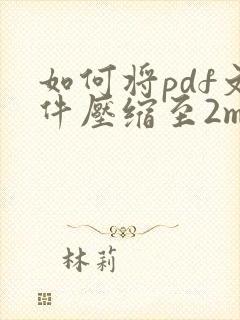 如何将pdf文
件壓缩至2m
林莉